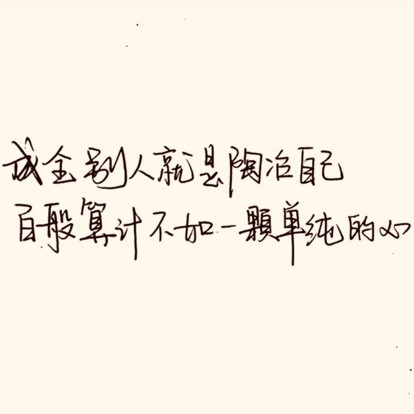 成全别人就是陶冶自己
百般算计不如一颗单纯的心